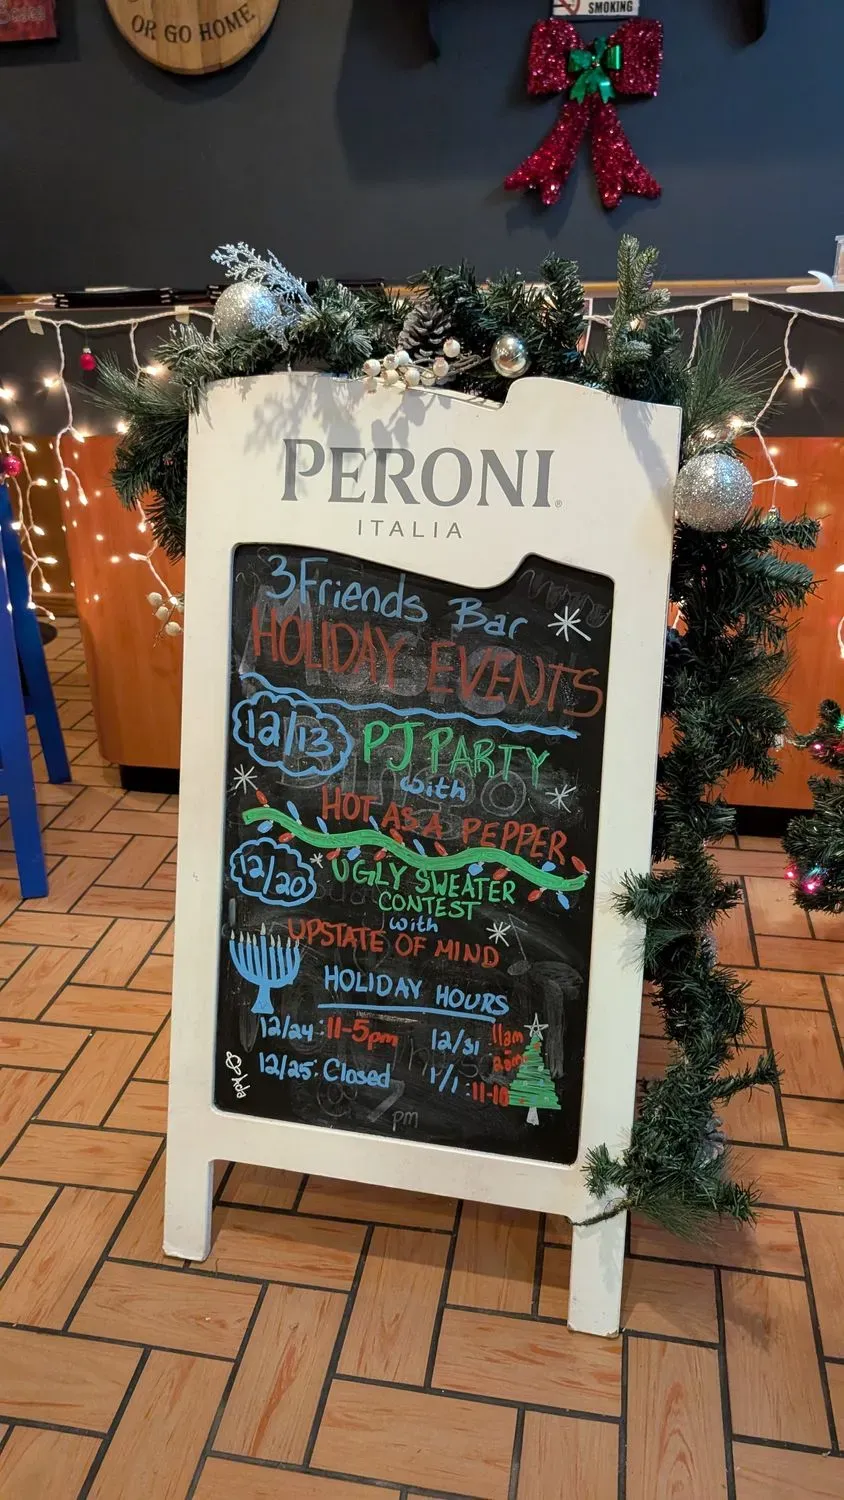 OR GO HOME
SMOKING
PERONI®
ITALIA
3 Friends Bar
HOLIDAY EVENTS
12/13 PJ PARTY
with
HOT AS A PEPPER
12/20 UGLY SWEATER
CONTEST
with
UPSTATE OF MIND
HOLIDAY HOURS
12/24: 11-5pm 12/31: 11am
2am
12/25: Closed 1/1: 11-10
pm